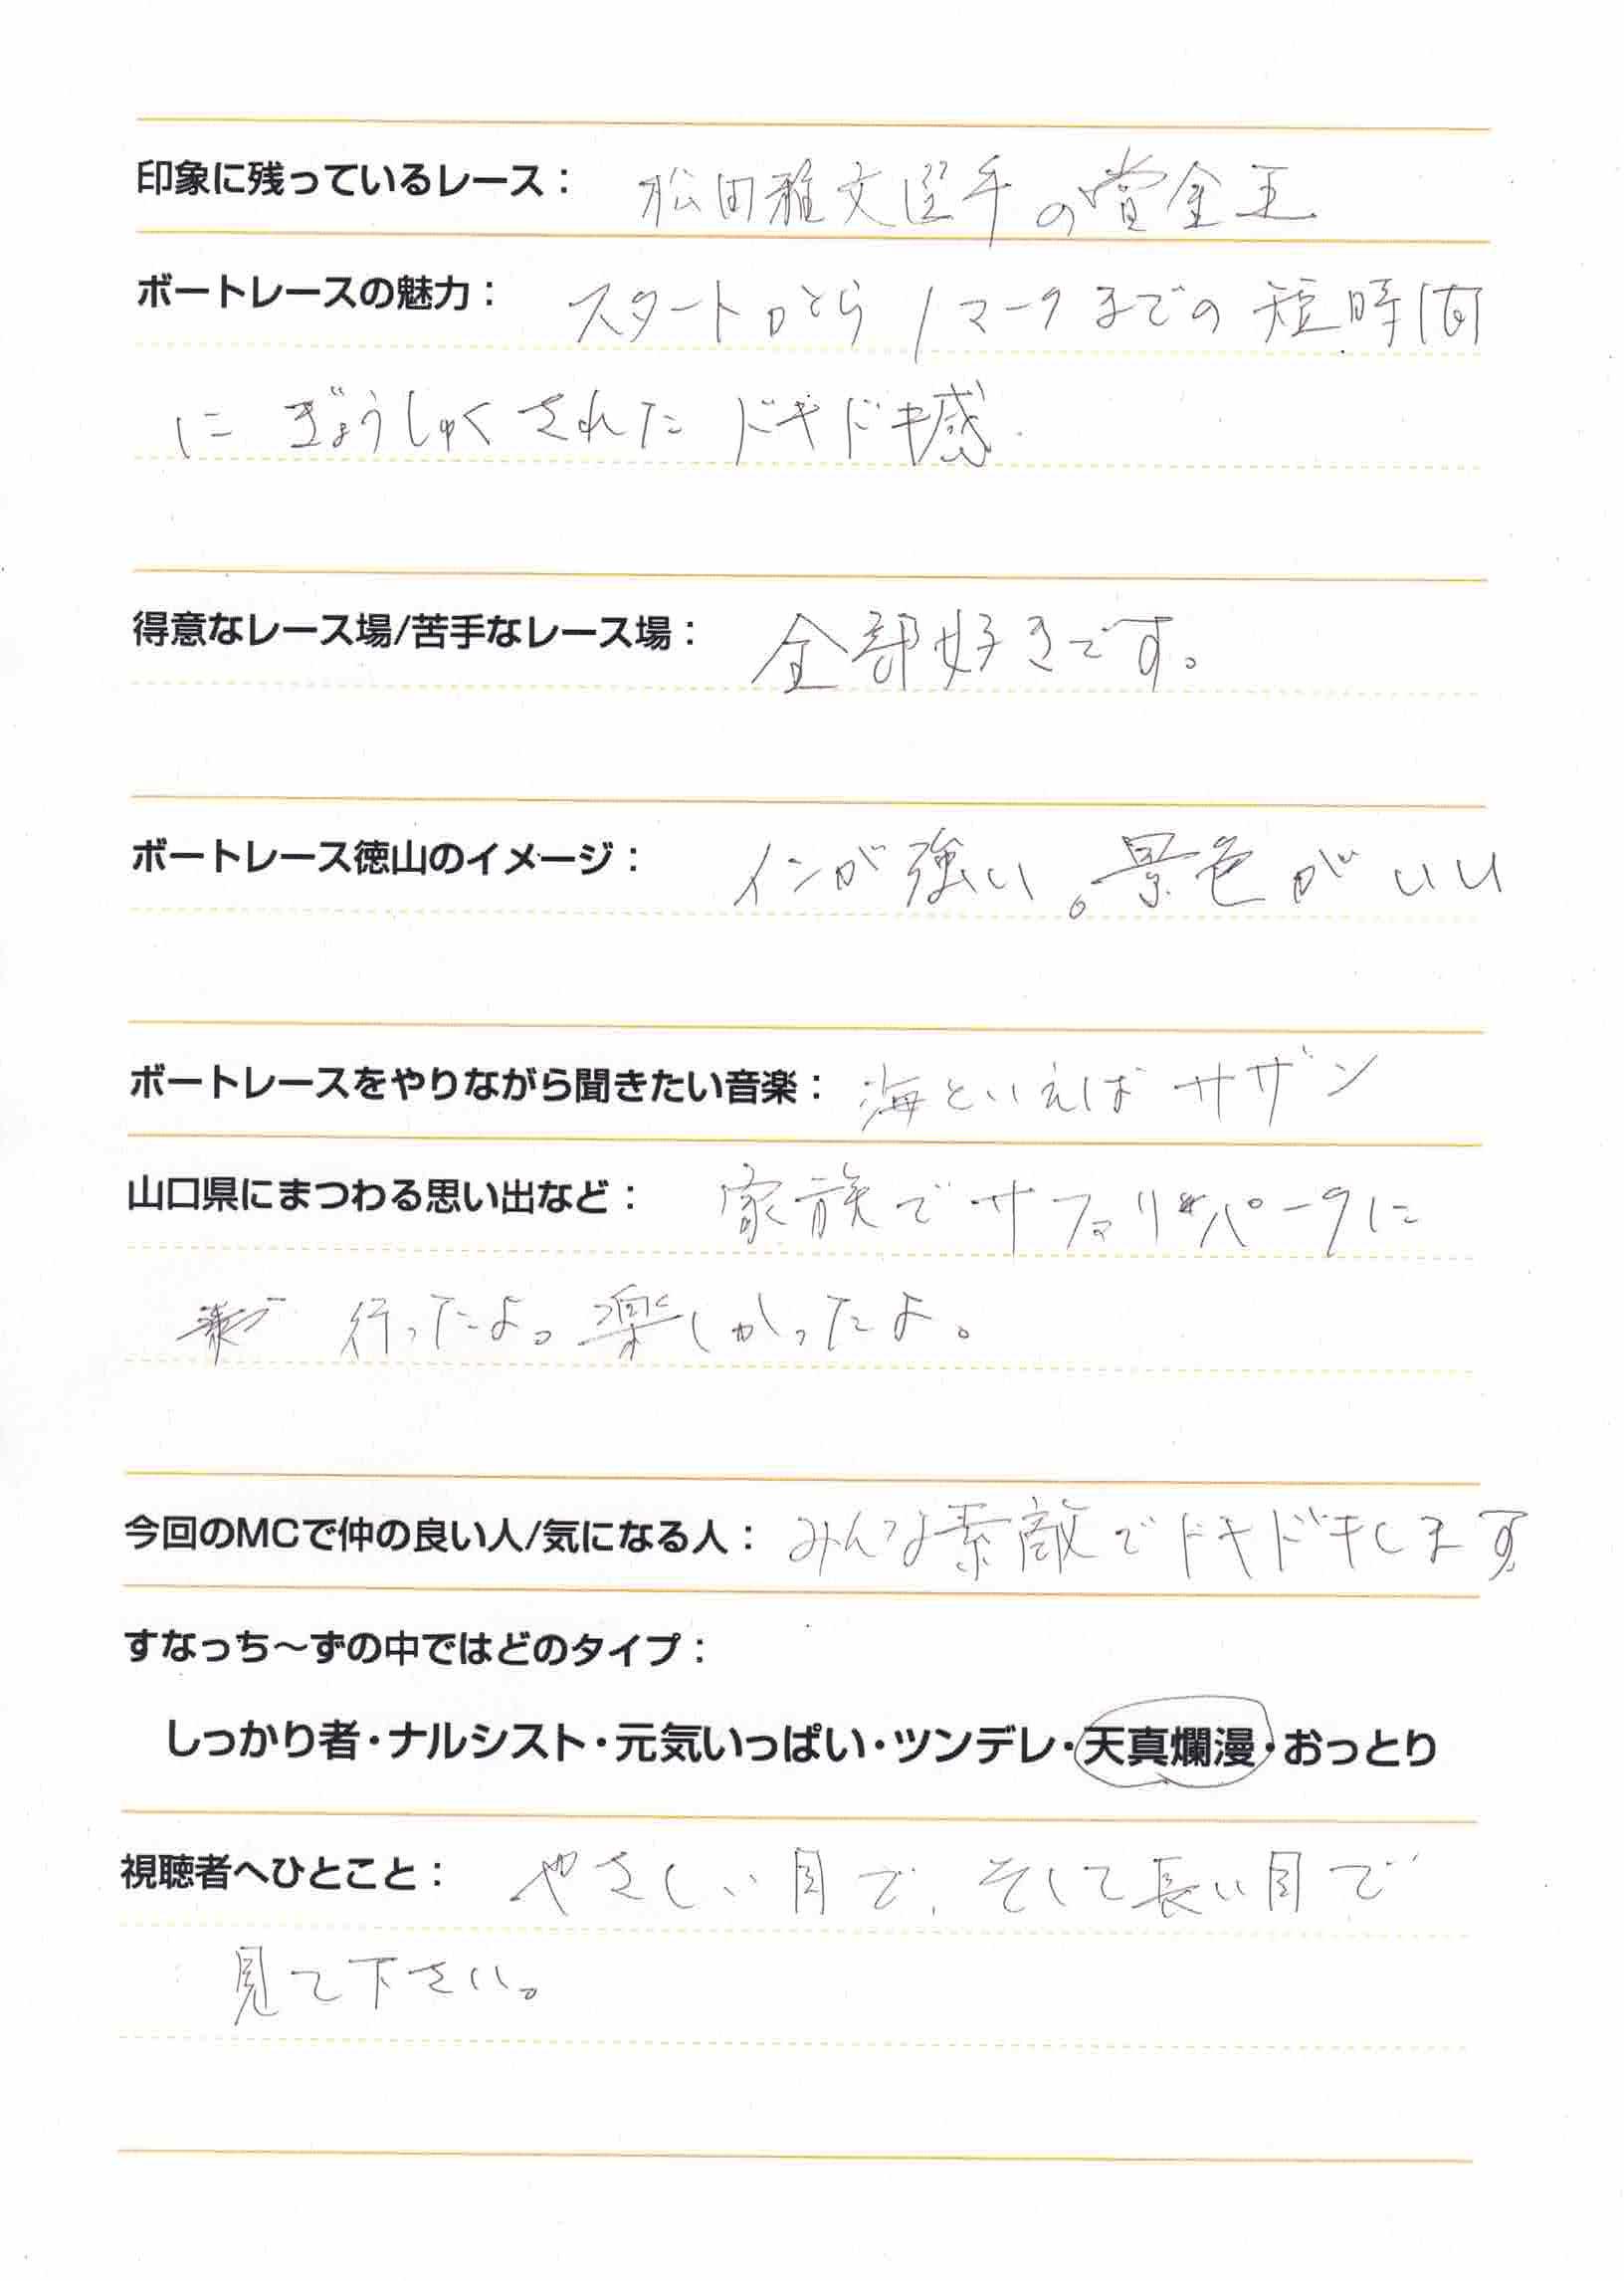 印象に残っているレース： 松田雅文選手の賞金王
ボートレースの魅力： スタートから1マークまでの短時間
に ぎょうしゅくされたドキドキ感
得意なレース場/苦手なレース場： 全部好きです。
ボートレース徳山のイメージ： インが強い。景色がいい
ボートレースをやりながら聞きたい音楽： 海といえばサザン
山口県にまつわる思い出など： 家族でサファリパークに
行ったよ。楽しかったよ。
今回のMCで仲の良い人/気になる人： みんな素敵でドキドキします
すなっち～ずの中ではどのタイプ：
しっかり者・ナルシスト・元気いっぱい・ツンデレ・天真爛漫・おっとり
視聴者へひとこと： やさしい目で、そして長い目で
見て下さい。